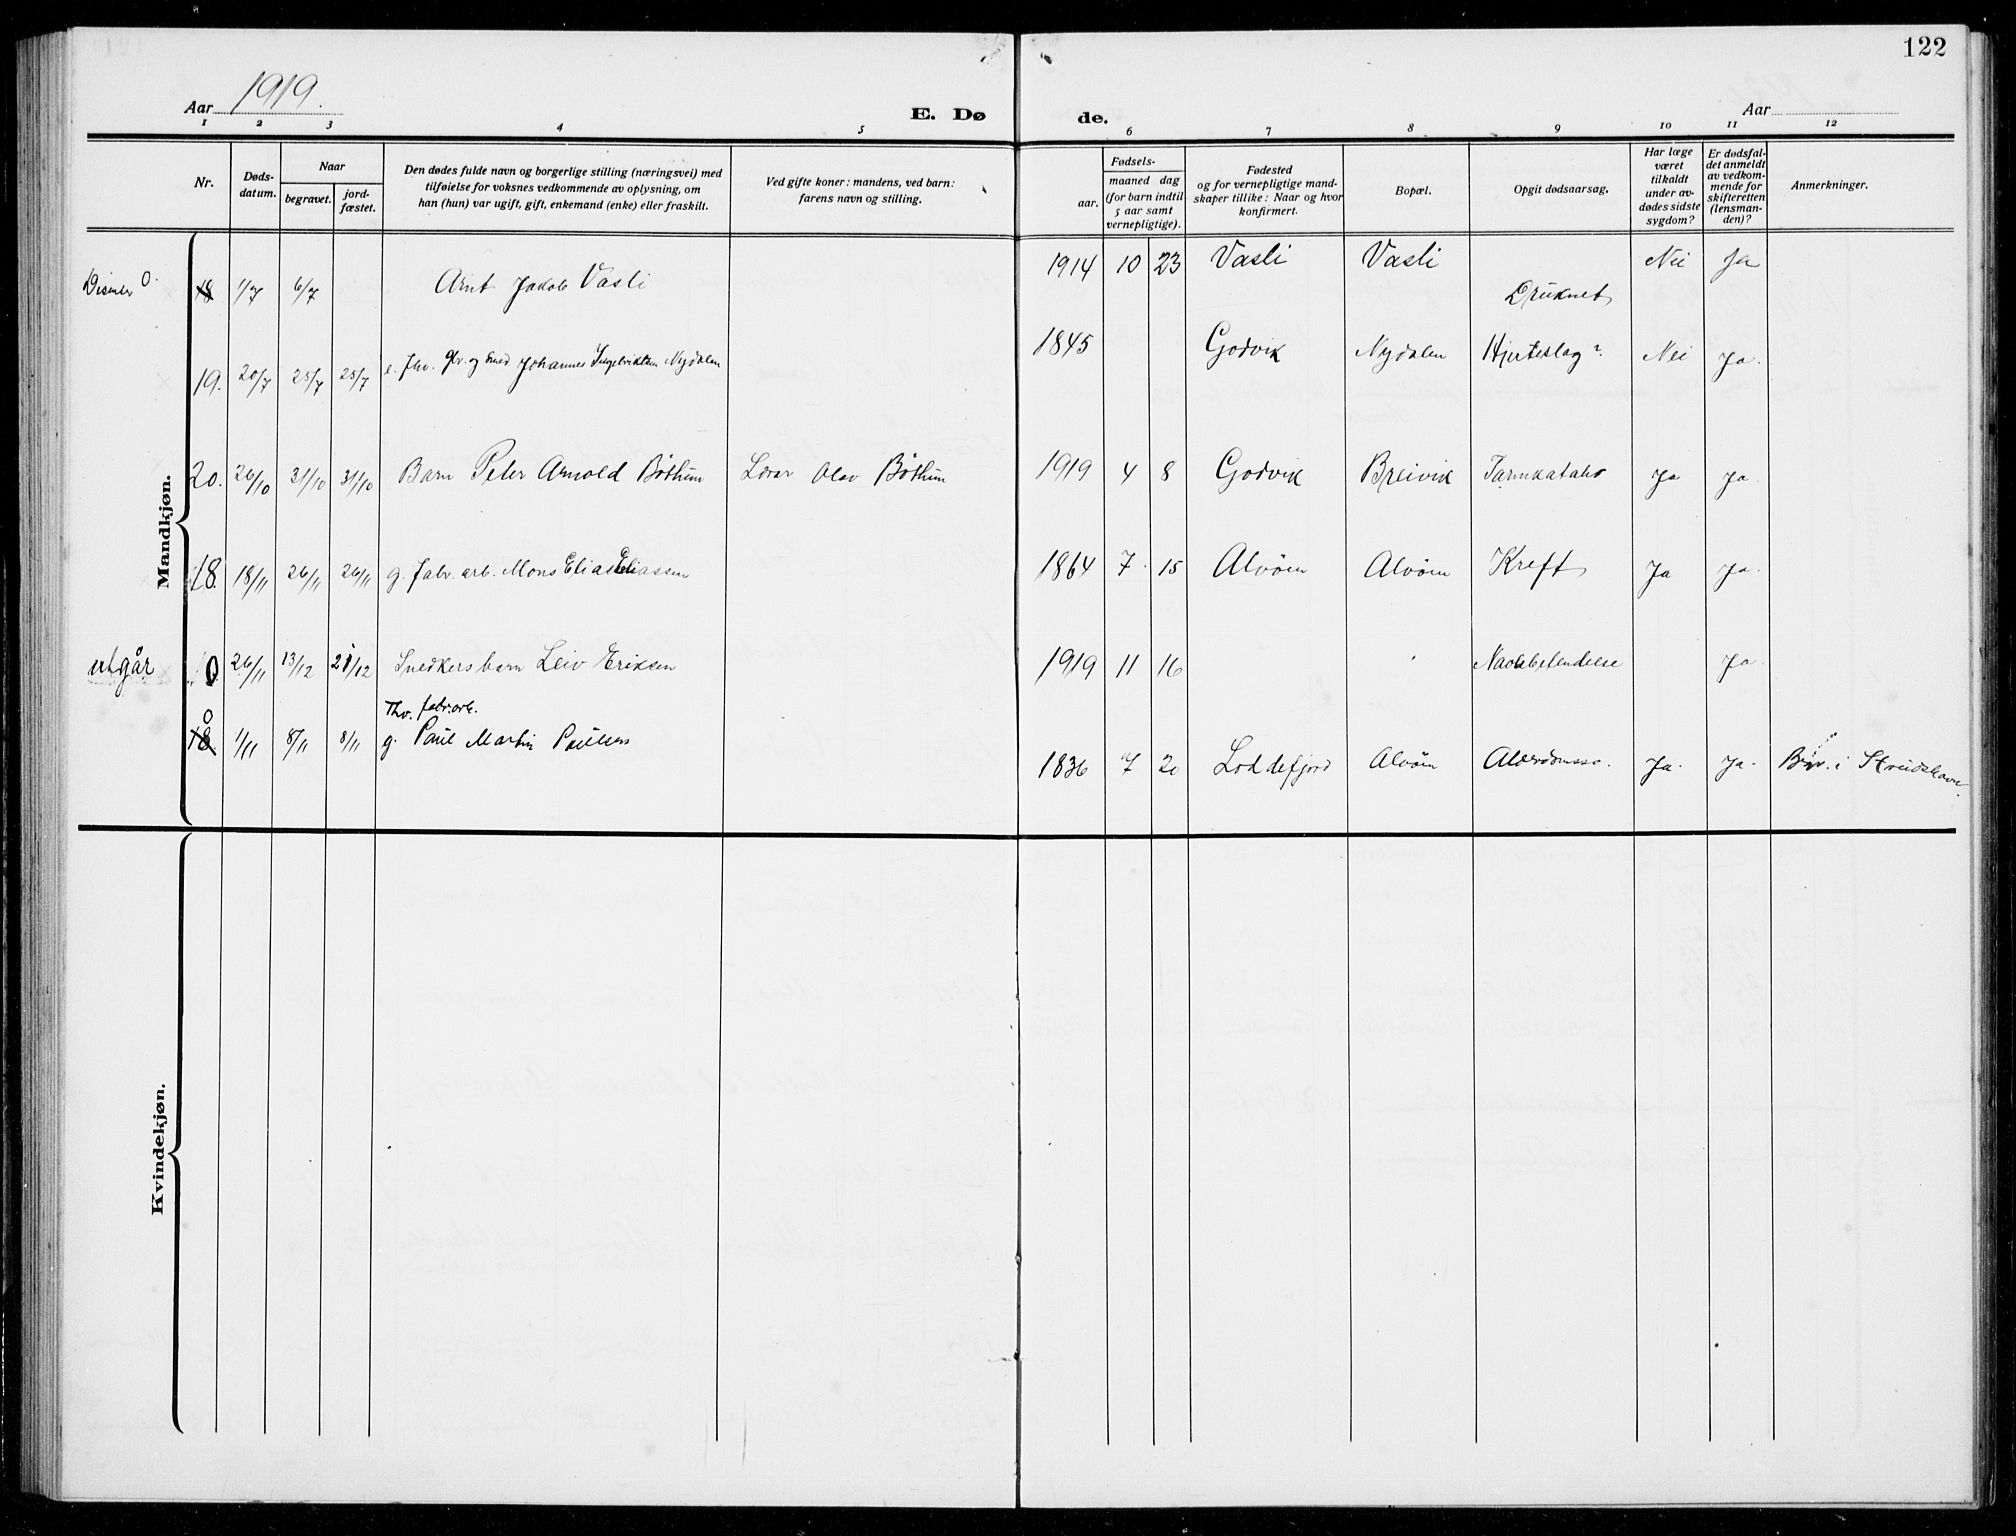 122
Aar 1919.
E. Dø de.
Aar
1 2 3 4 5 6 7 8 9 10 11 12
Nr.
Døds-
datum.
Naar
begravet.
jord-
fæstet.
Den dødes fulde navn og borgerlige stilling (næringsvei) med
tilføielse for voksnes vedkommende av oplysning, om
han (hun) var ugift, gift, enkemand (enke) eller fraskilt.
Ved gifte koner: mandens, ved barn:
farens navn og stilling.
Fødsels-
aar.
maaned dag
(for barn indtil
5 aar samt
vernepligtige).
Fødested
og for vernepligtige mand-
skaper tillike: Naar og hvor
konfirmert.
Bopæl.
Opgit dødsaarsag.
Har læge
været
tilkaldt
under av-
dødes sidste
sygdom?
Er dødsfal-
det anmeldt
av vedkom-
mende for
skifteretten
(lensman-
den)?
Anmerkninger.
Mandkjøn.
0. 18 1/7 6/7 Arnt Jakob Vasli 1914 10 23 Vasli Vasli Druknet Nei Ja
19. 20/7 25/7 25/7 e. fhv. gbr. og smed Johannes Nydalen 1845 Godvik Nydalen Hjerteslag? Nei Ja.
20. 26/10 31/10 31/10 Barn Peter Arnold Bøthun Lærar Olav Bøthun 1919 4 8 Godvik Breivik Ja Ja.
18. 18/11 26/11 26/11 g. fabr. arb. Mons Elias Eliassen 1864 7 15 Alvøen Alvøen Kreft Ja Ja.
utgår 0 26/11 13/12 21/12 Snedkersbarn Leiv Eriksen 1919 11 16 Navlebetendelse Ja.
Fhv. fabr. arb.
0 18 1/11 8/11 8/11 g. Paul Martin Paulsen 1836 7 20 Loddefjord Alvøen Alderdomssv. Ja. Ja. i
Kvindekjøn.